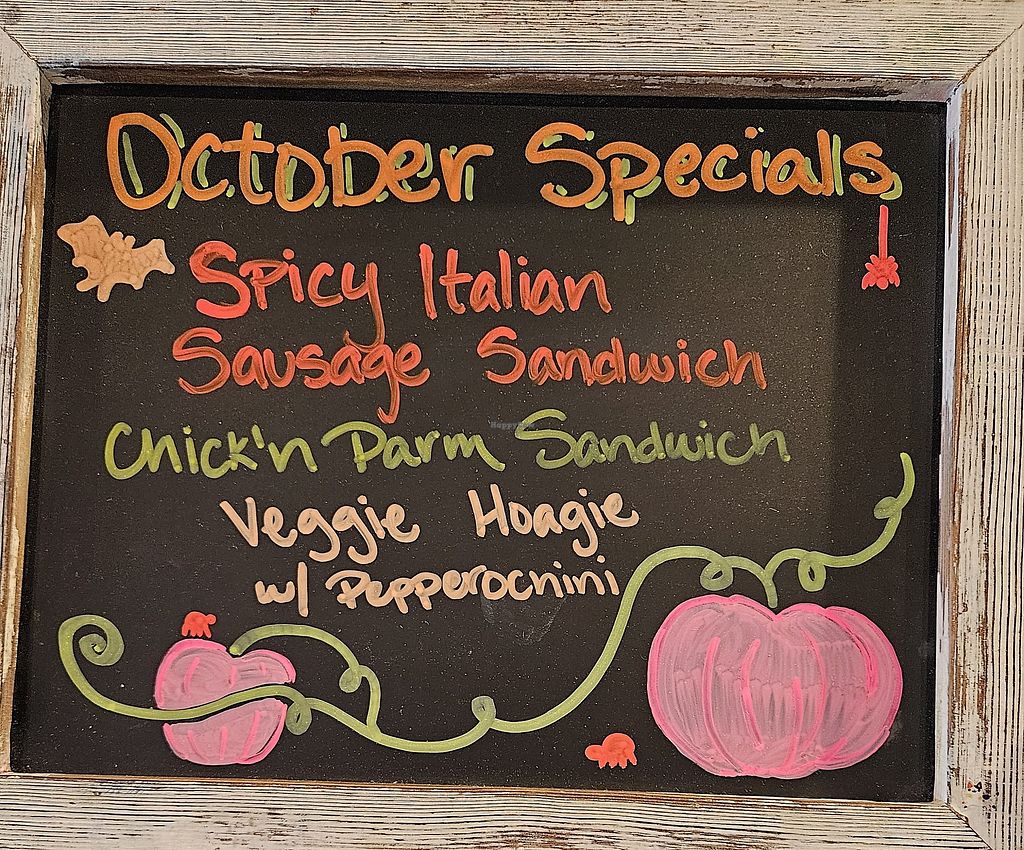 October Specials
Spicy Italian
Sausage Sandwich
Chick'n Parm Sandwich
Veggie Hoagie
w/ Pepperocnini